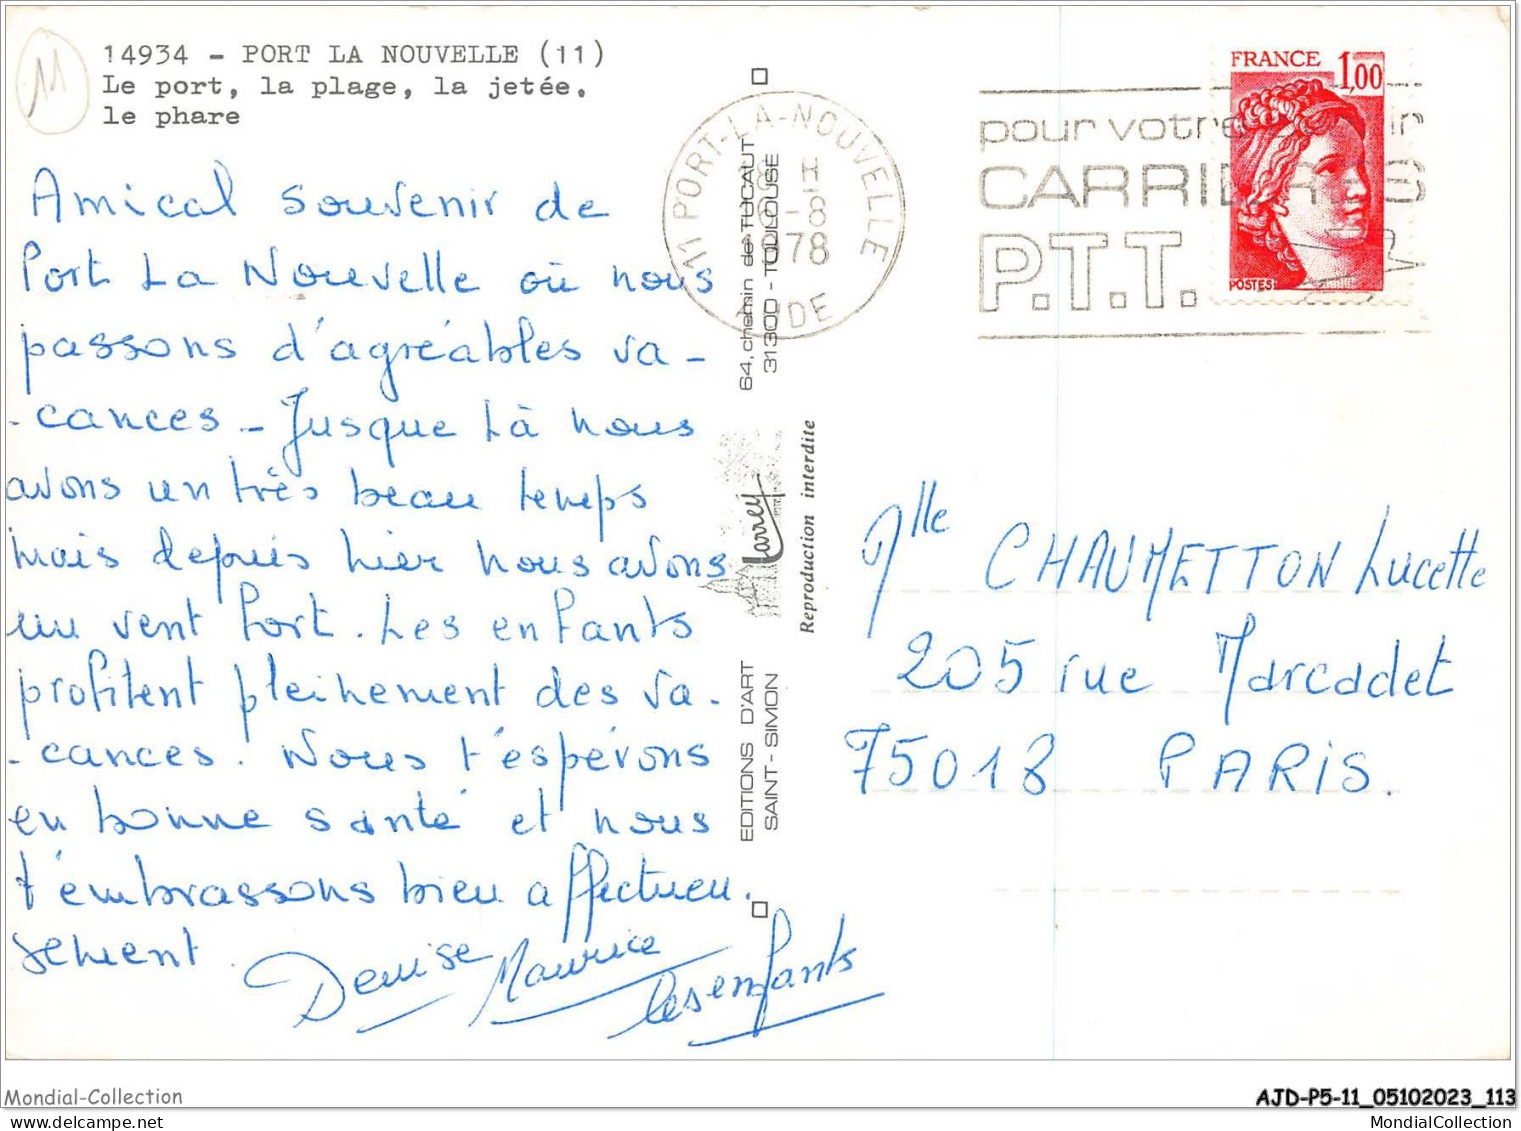 11
14934 - PORT LA NOUVELLE (11)
Le port, la plage, la jetée.
le phare
Amical souvenir de
Port La Nouvelle où nous
passons d'agréables va-
-cances - Jusque là nous
avons un très beau temps
mais depuis hier nous avons
un vent fort. Les enfants
profitent pleinement des va-
-cances. Nous t'espérons
en bonne santé et nous
t'embrassons bien affectueu-
sement.
Denise Maurice les enfants
64, chemin de TUCAUT
31300 - TOULOUSE
Larrey
Reproduction interdite
EDITIONS D'ART
SAINT-SIMON
11 PORT-LA-NOUVELLE
H
-8
1978
AUDE
pour votre
CARRIERES
P.T.T.
FRANCE 1,00
POSTES
Mlle CHAUMETTON Lucette
205 rue Marcadet
75018 PARIS.
Mondial-Collection
AJD-P5-11_05102023_113
MondialCollection